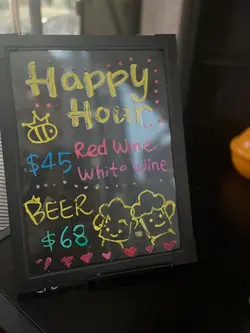 Happy
Hour
$45 Red Wine
White Wine
BEER
$68